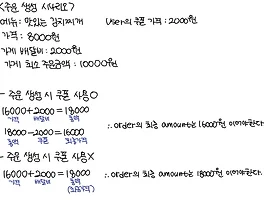 <주문 생성 시나리오>
메뉴: 맛있는 김치찌개 User의 쿠폰 가격: 2000원
가격: 8000원
가게 배달비: 2000원
가게 최소 주문금액: 10000원
- 주문 생성 시 쿠폰 사용O
16000+2000=18000
가격 배달비 총액
∴ order의 최종 amount는 16000원 이어야한다.
18000-2000=16000
총액 쿠폰 최종가격
- 주문 생성 시 쿠폰 사용X
16000+2000=18000
가격 배달비 총액
(최종가격)
∴ order의 최종 amount는 18000원 이어야한다.